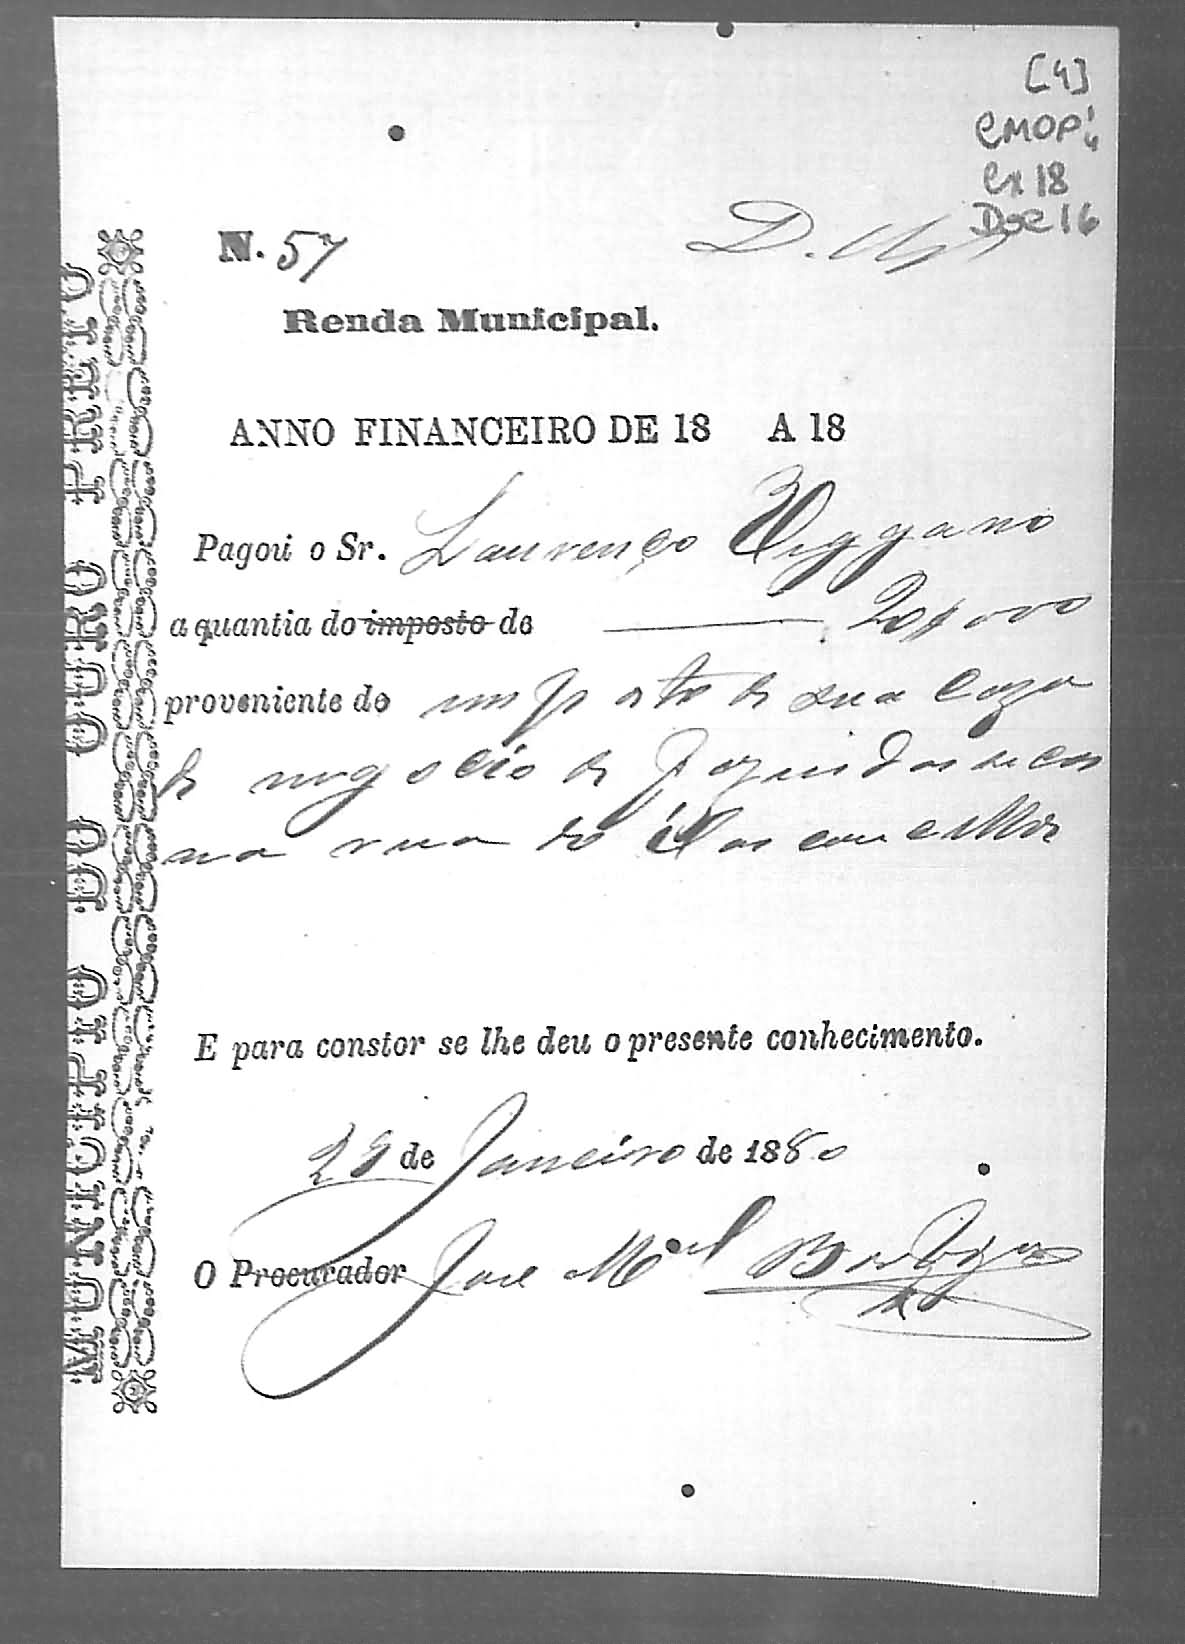 [4]
CMOP
Cx 18
Doc 16
N. 57
Renda Municipal.
ANNO FINANCEIRO DE 18 A 18
Pagou o Sr. Lourenço
a quantia do imposto de 20$000
proveniente do imposto de sua caza
de negocio de fazendas secas
na rua de Vasconcellos
E para constar se lhe deu o presente conhecimento.
28 de Janeiro de 1880
O Procurador José Mel
MUNICIPIO DO OURO PRETO